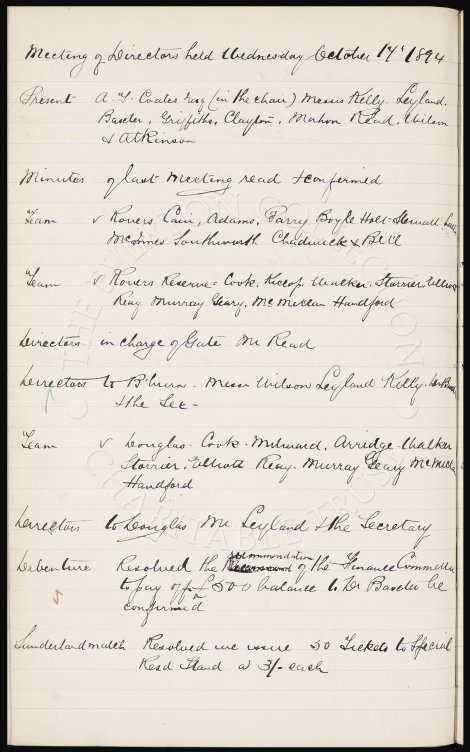 Meeting of Directors held Wednesday October 17' 1894
Present A. T. Coates Esq (in the chair) Messrs Kelly. Leyland.
Baxter, Griffiths, Clayton, Mahon Read, Wilson
& Atkinson
Minutes of last Meeting read & confirmed
Team v Rovers Cain, Adams, Parry Boyle Holt Stewart
McInnes Southworth Chadwick & Bell
Team v Rovers Reserve = Cook. Kislop Walker. Storrier, Elliott
Reay Murray Geary. McMillan Handford
Directors in charge of Gate Mr Read
Directors to B'burn. Messrs Wilson Leyland Kelly.
& the Sec -
Team v Douglas. Cook. Milward, Arridge. Walker
Storrier. Elliott Reay. Murray Geary McMillan
Handford
Directors to Douglas Mr Leyland & the Secretary
Debenture Resolved the recommendation of the Finance Committee
to pay off £500 balance to Dr Baxter be
confirmed
Sunderland match Resolved we issue 50 Tickets to Special
Resd Stand @ 3/- each
THE EVERTON COLLECTION
CHARITABLE TRUST